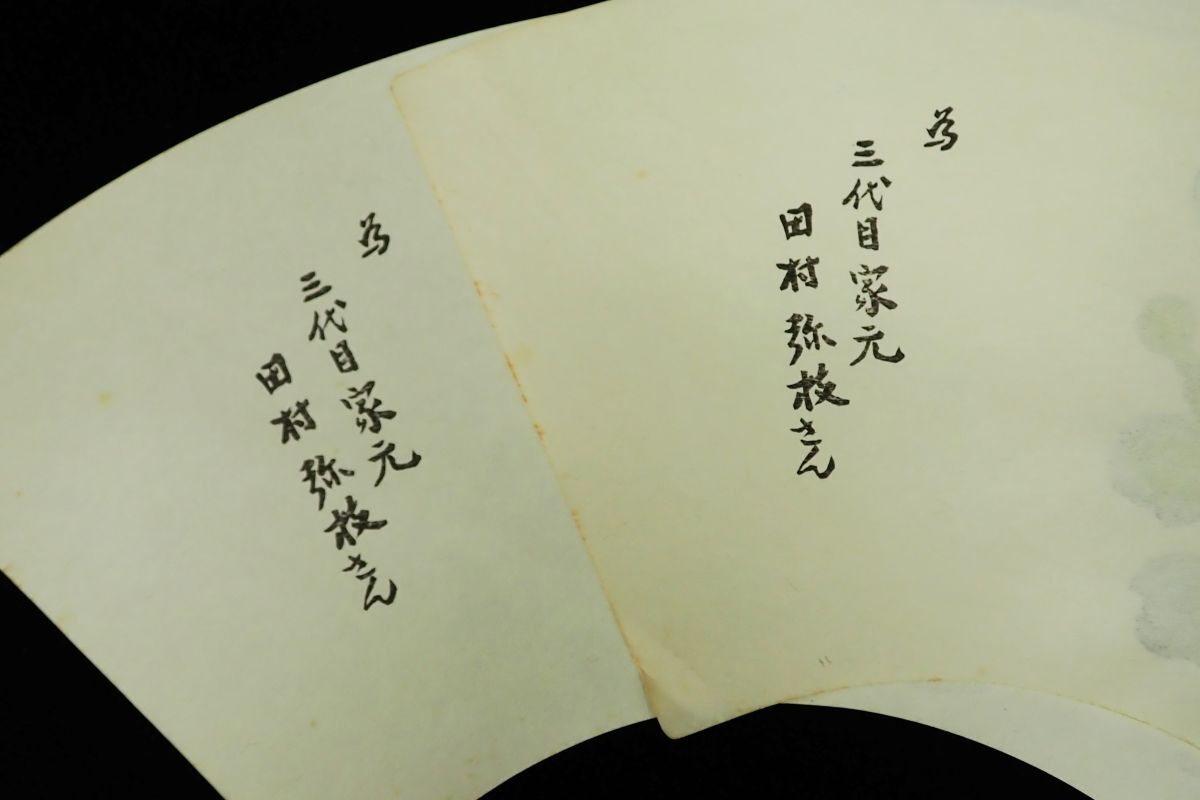 為
三代目家元
田村弥枝さん
為
三代目家元
田村弥枝さん